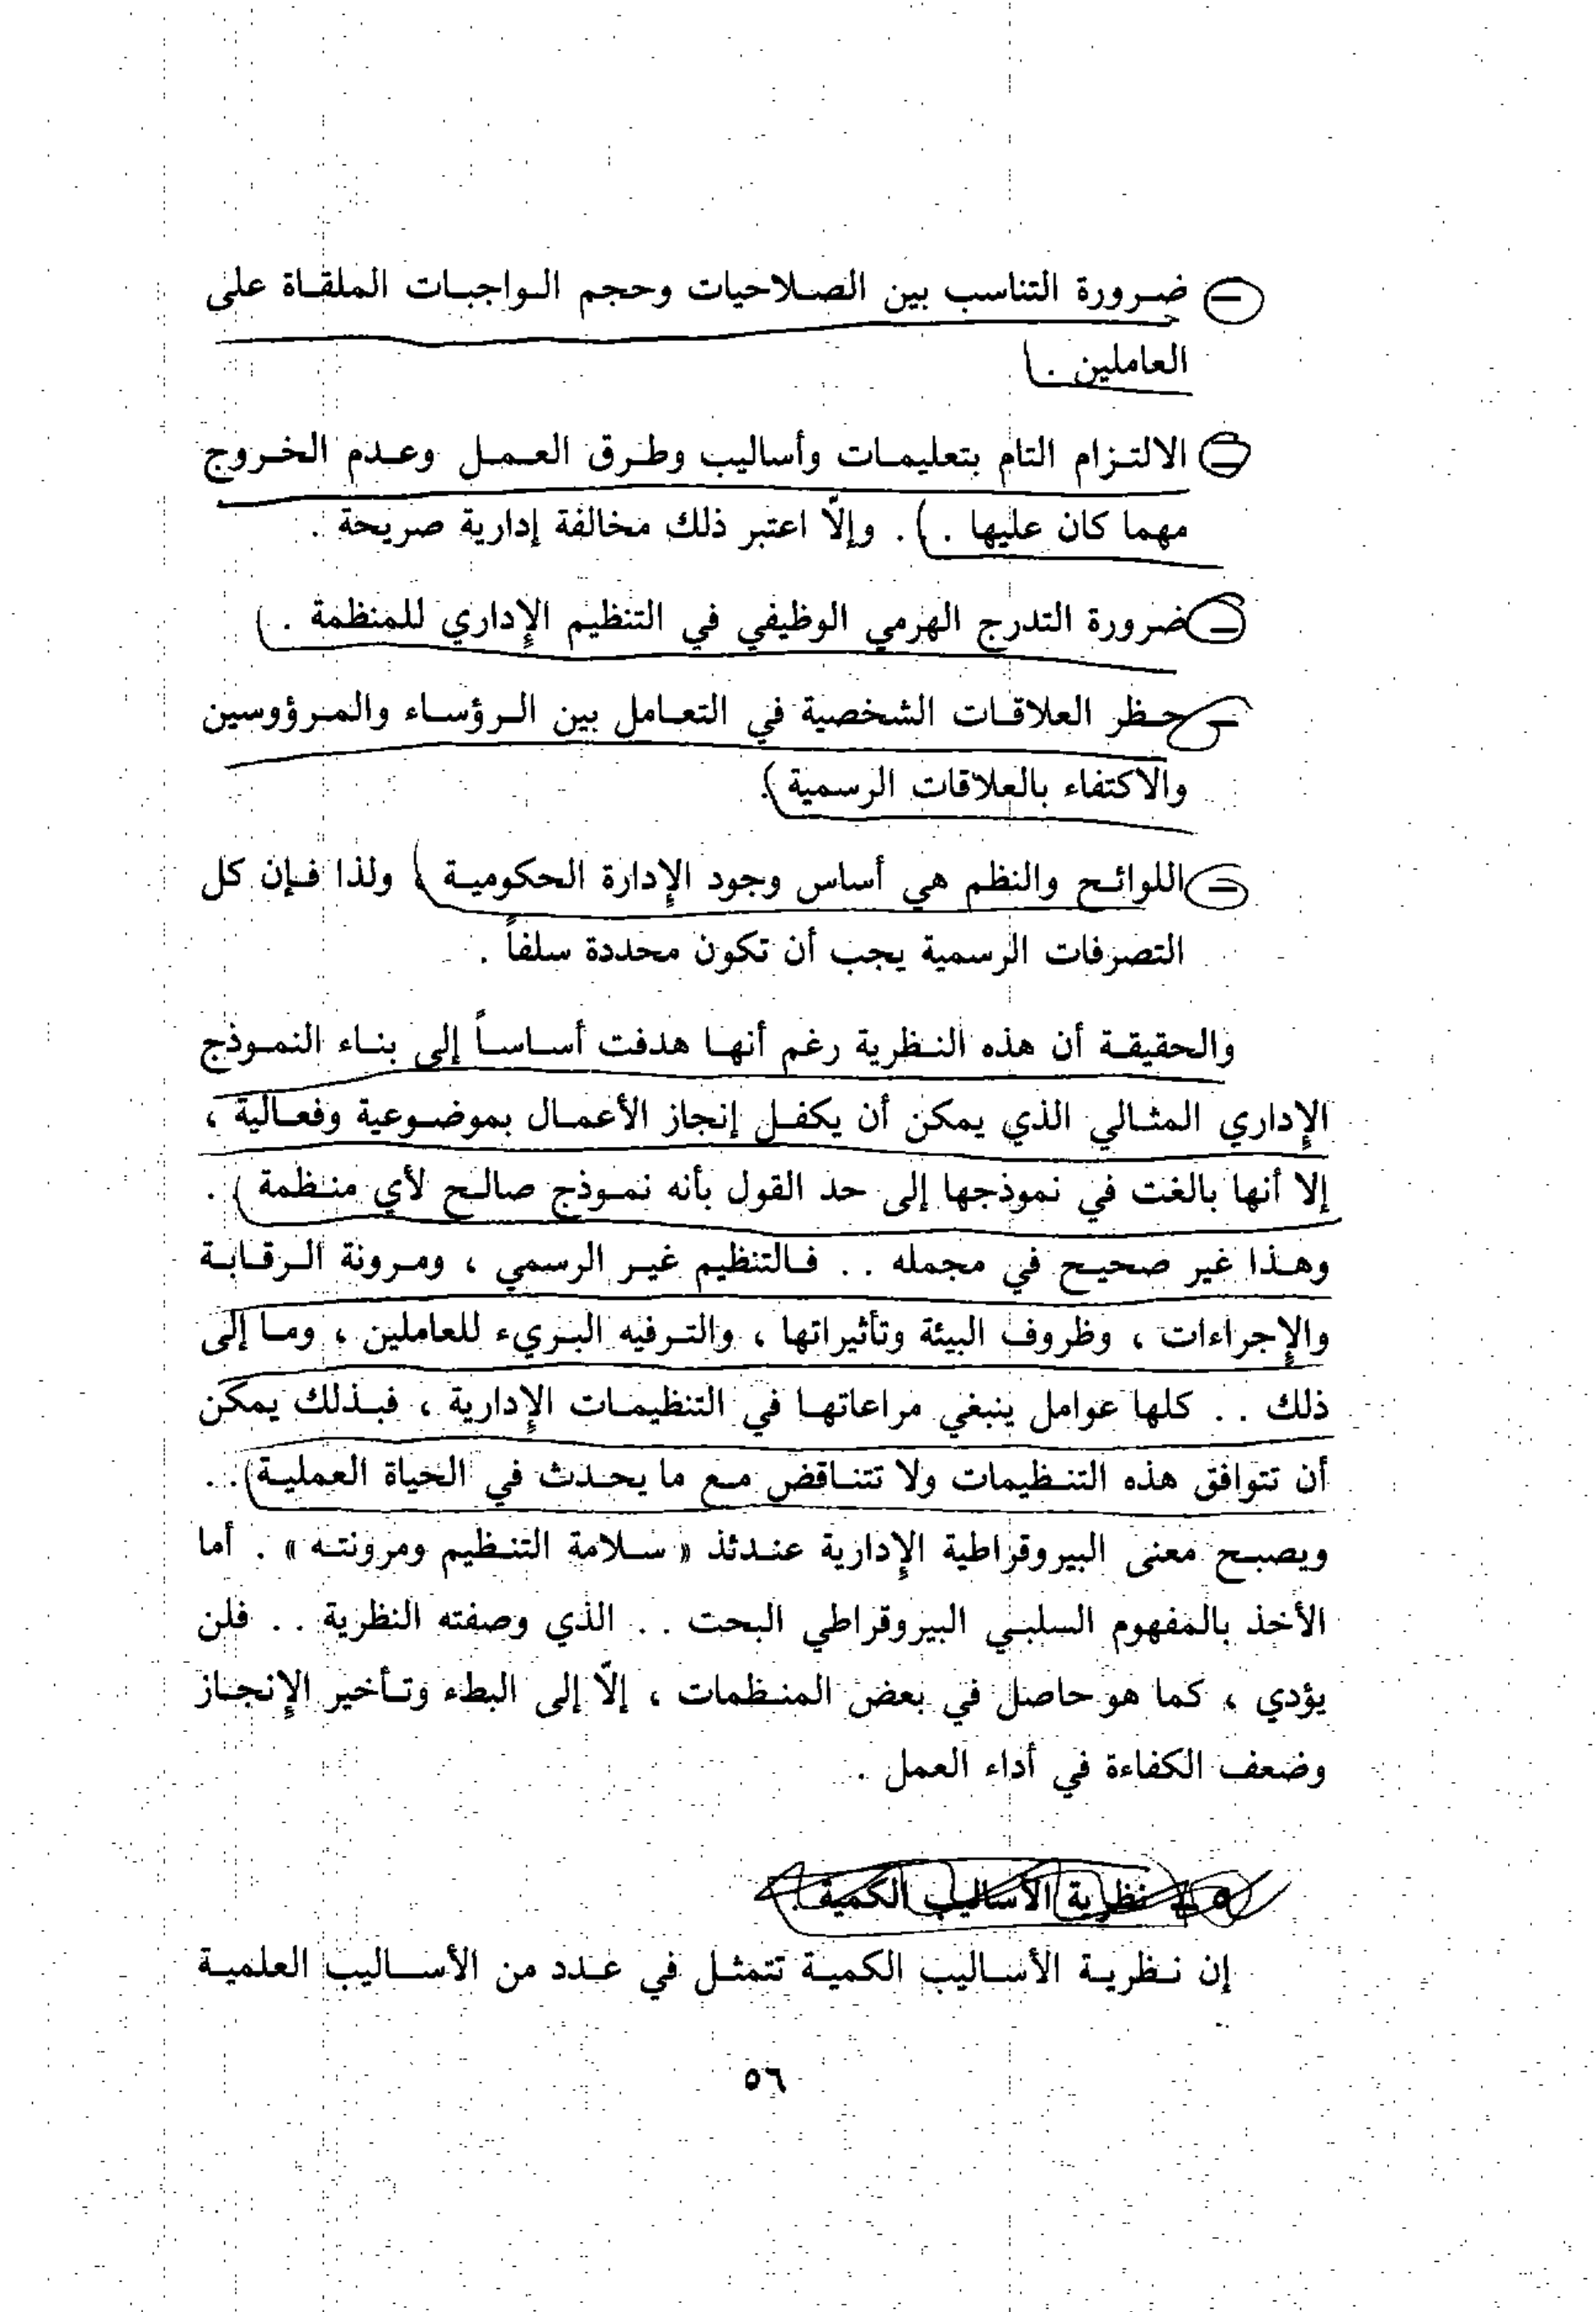 - ضرورة التناسب بين الصلاحيات وحجم الواجبات الملقاة على
العاملين .
- الالتزام التام بتعليمات وأساليب وطرق العمل وعدم الخروج
مهما كان عليها . . وإلّا اعتبر ذلك مخالفة إدارية صريحة .
- ضرورة التدرج الهرمي الوظيفي في التنظيم الإداري للمنظمة .
- حظر العلاقات الشخصية في التعامل بين الرؤساء والمرؤوسين
والاكتفاء بالعلاقات الرسمية .
- اللوائح والنظم هي أساس وجود الإدارة الحكومية ولذا فإن كل
التصرفات الرسمية يجب أن تكون محددة سلفاً .
والحقيقة أن هذه النظرية رغم أنها هدفت أساساً إلى بناء النموذج
الإداري المثالي الذي يمكن أن يكفل إنجاز الأعمال بموضوعية وفعالية ،
إلا أنها بالغت في نموذجها إلى حد القول بأنه نموذج صالح لأي منظمة .
وهذا غير صحيح في مجمله . . فالتنظيم غير الرسمي ، ومرونة الرقابة
والإجراءات ، وظروف البيئة وتأثيراتها ، والترفيه البريء للعاملين ، وما إلى
ذلك . . كلها عوامل ينبغي مراعاتها في التنظيمات الإدارية ، فبذلك يمكن
أن تتوافق هذه التنظيمات ولا تتناقض مع ما يحدث في الحياة العملية . .
ويصبح معنى البيروقراطية الإدارية عندئذ « سلامة التنظيم ومرونته » . أما
الأخذ بالمفهوم السلبي البيروقراطي البحت . . الذي وصفته النظرية . . فلن
يؤدي ، كما هو حاصل في بعض المنظمات ، إلّا إلى البطء وتأخير الإنجاز
وضعف الكفاءة في أداء العمل .
٥ - نظرية الأساليب الكمية :
إن نظرية الأساليب الكمية تتمثل في عدد من الأساليب العلمية
٥٦